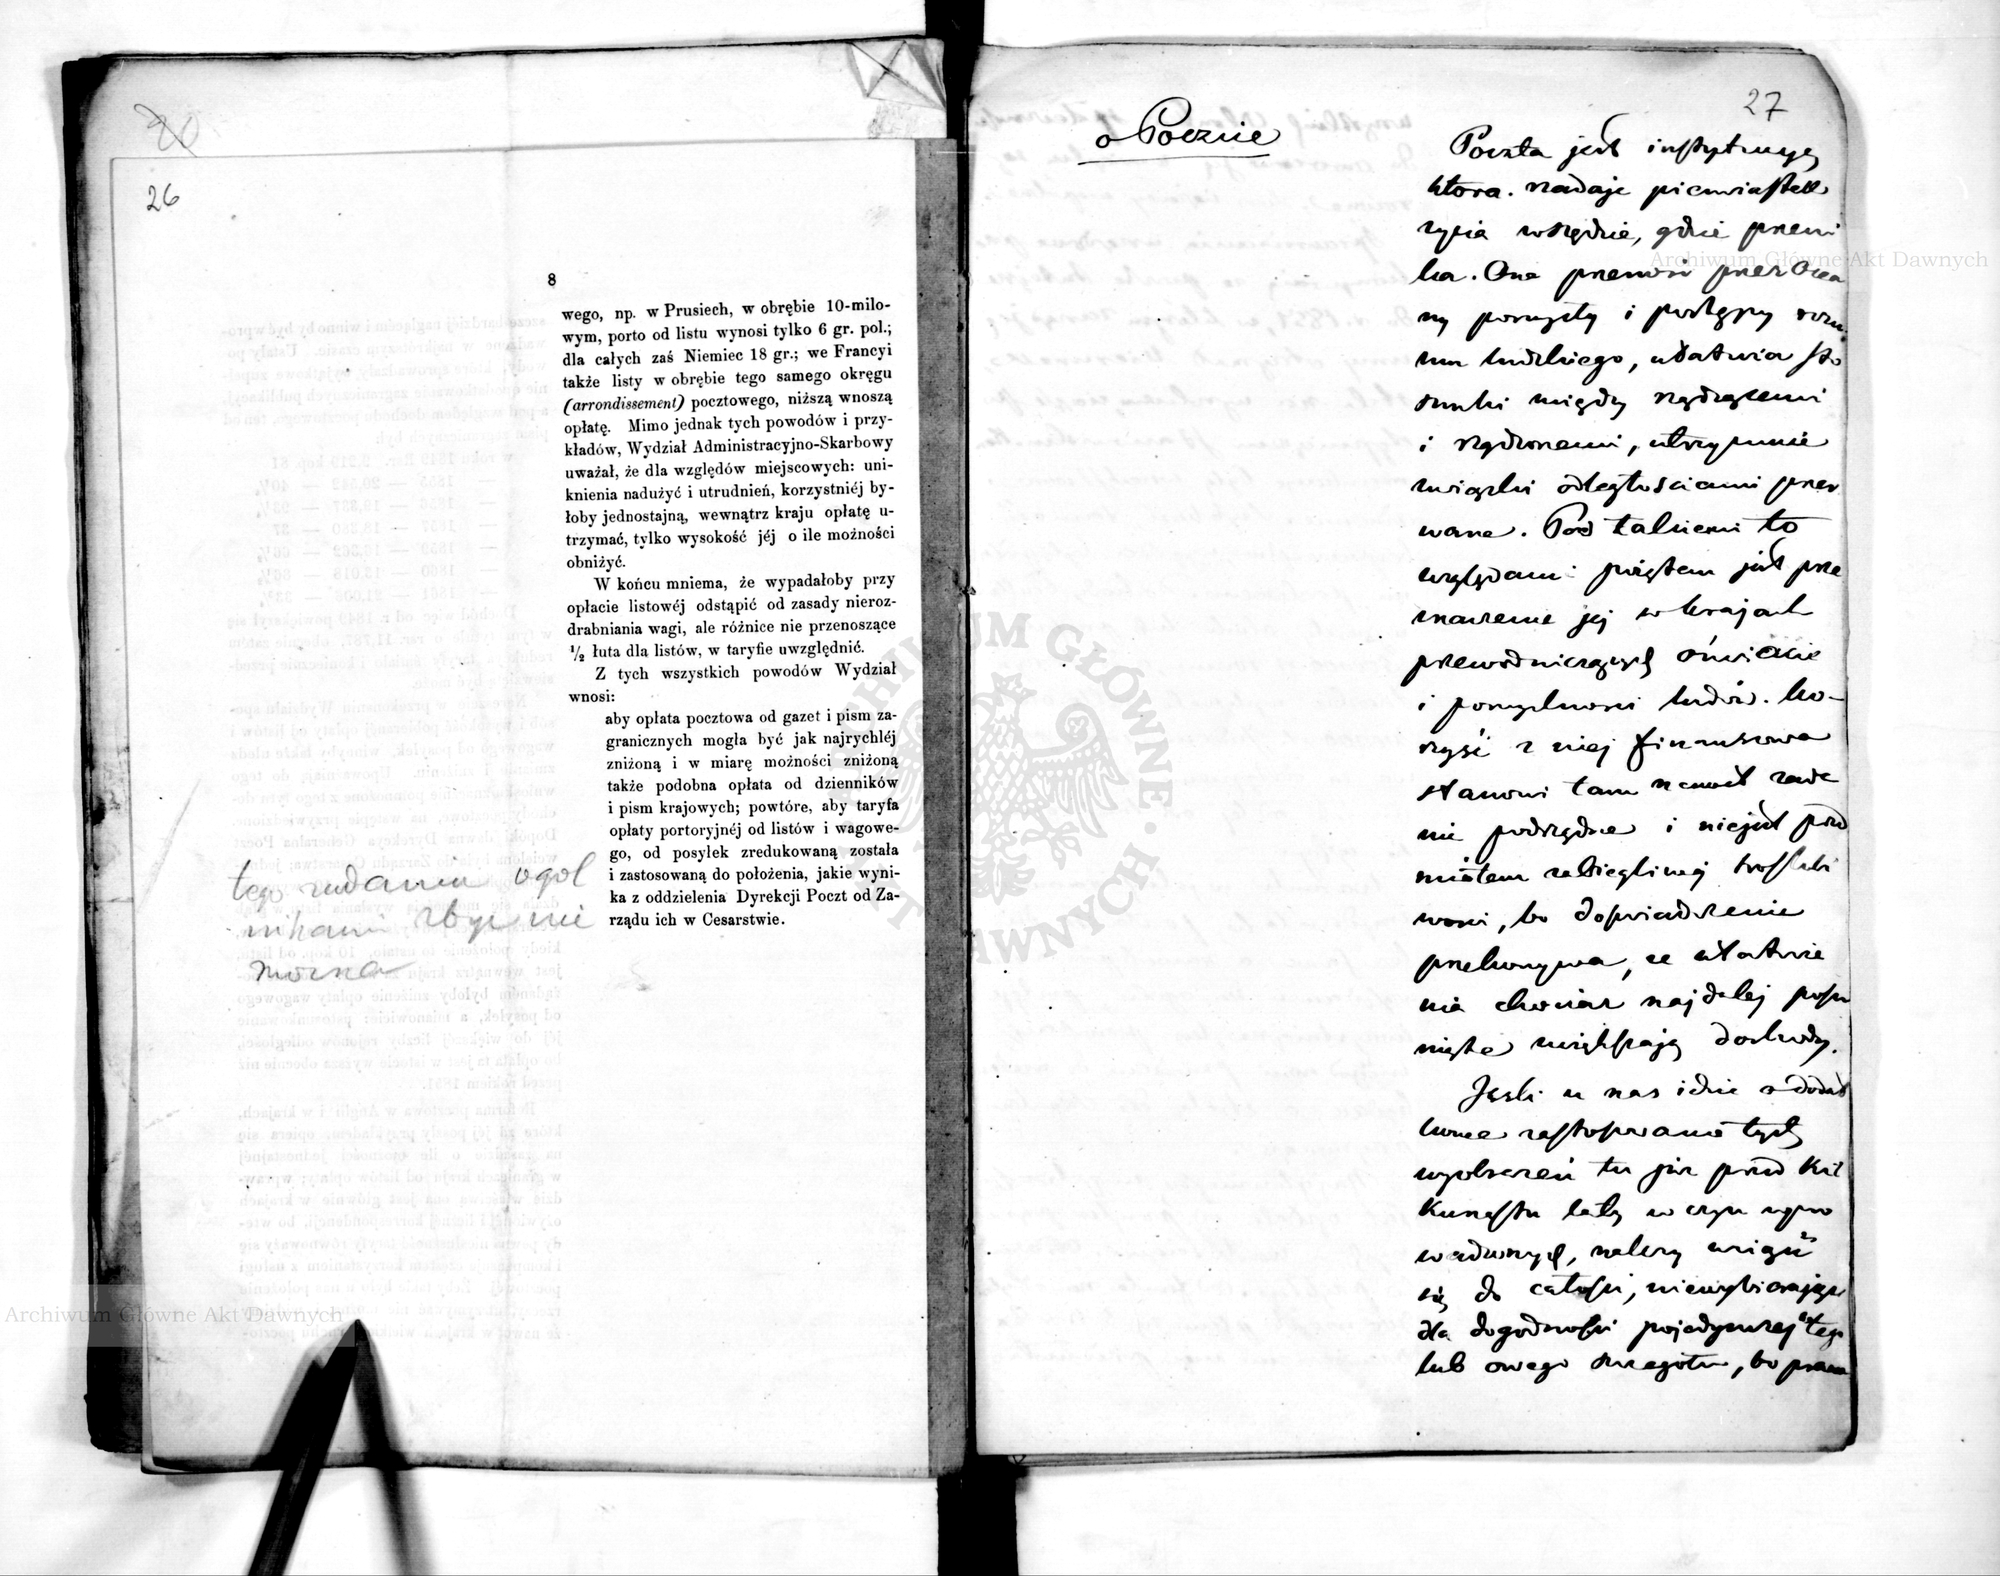 20
26
8
wego, np. w Prusiech, w obrębie 10-milo-
wym, porto od listu wynosi tylko 6 gr. pol.;
dla całych zaś Niemiec 18 gr.; we Francyi
także listy w obrębie tego samego okręgu
(arrondissement) pocztowego, niższą wnoszą
opłatę. Mimo jednak tych powodów i przy-
kładów, Wydział Administracyjno-Skarbowy
uważał, że dla względów miejscowych: uni-
knienia nadużyć i utrudnień, korzystniéj by-
łoby jednostajną, wewnątrz kraju opłatę u-
trzymać, tylko wysokość jéj o ile możności
obniżyć.
W końcu mniema, że wypadałoby przy
opłacie listowéj odstąpić od zasady nieroz-
drabniania wagi, ale różnice nie przenoszące
½ łuta dla listów, w taryfie uwzględnić.
Z tych wszystkich powodów Wydział
wnosi:
aby opłata pocztowa od gazet i pism za-
granicznych mogła być jak najrychléj
zniżoną i w miarę możności zniżoną
także podobna opłata od dzienników
i pism krajowych; powtóre, aby taryfa
opłaty portoryjnéj od listów i wagowe-
go, od posyłek zredukowaną została
i zastosowaną do położenia, jakie wyni-
ka z oddzielenia Dyrekcji Poczt od Za-
rządu ich w Cesarstwie.
tego zadania ogól
nikami zbyć nie
można
27
o Poczcie
Poczta jest instytucyą
która nadaje pierwiastek
życia wszędzie, gdzie przeni
ka. Ona przenosi przez Ocea
ny pomysły i postępy rozu
mu ludzkiego, ułatwia sto
sunki między rządzącemi
i rządzonemi, utrzymuie
związki odległościami prze
wane. Pod takiemi to
względami świętem jest prze
znaczenie jej w krajach
przewodniczących oświacie
i pomyślności ludów. Ko-
rzyść z niej finansowa
stanowi tam nawet zada
nie podrzędne i niejest przed
miotem zabiegliwej troskli
wości, bo doświadczenie
przekonywa, że ułatwie
nia chociaż najdalej posu
nięte zwiększają dochody.
Jeśli u nas idzie o dodat
kowe zastosowanie tych
wyobrażeń tu już przed kil
kunastu laty w czyn wpro
wadzonych, należy wziąść
się do całości, niewybierając
dla dogodności pojedynczej tego
lub owego szczegółu, bo
Archiwum Główne Akt Dawnych
Archiwum Główne Akt Dawnych
ARCHIWUM GŁÓWNE AKT DAWNYCH